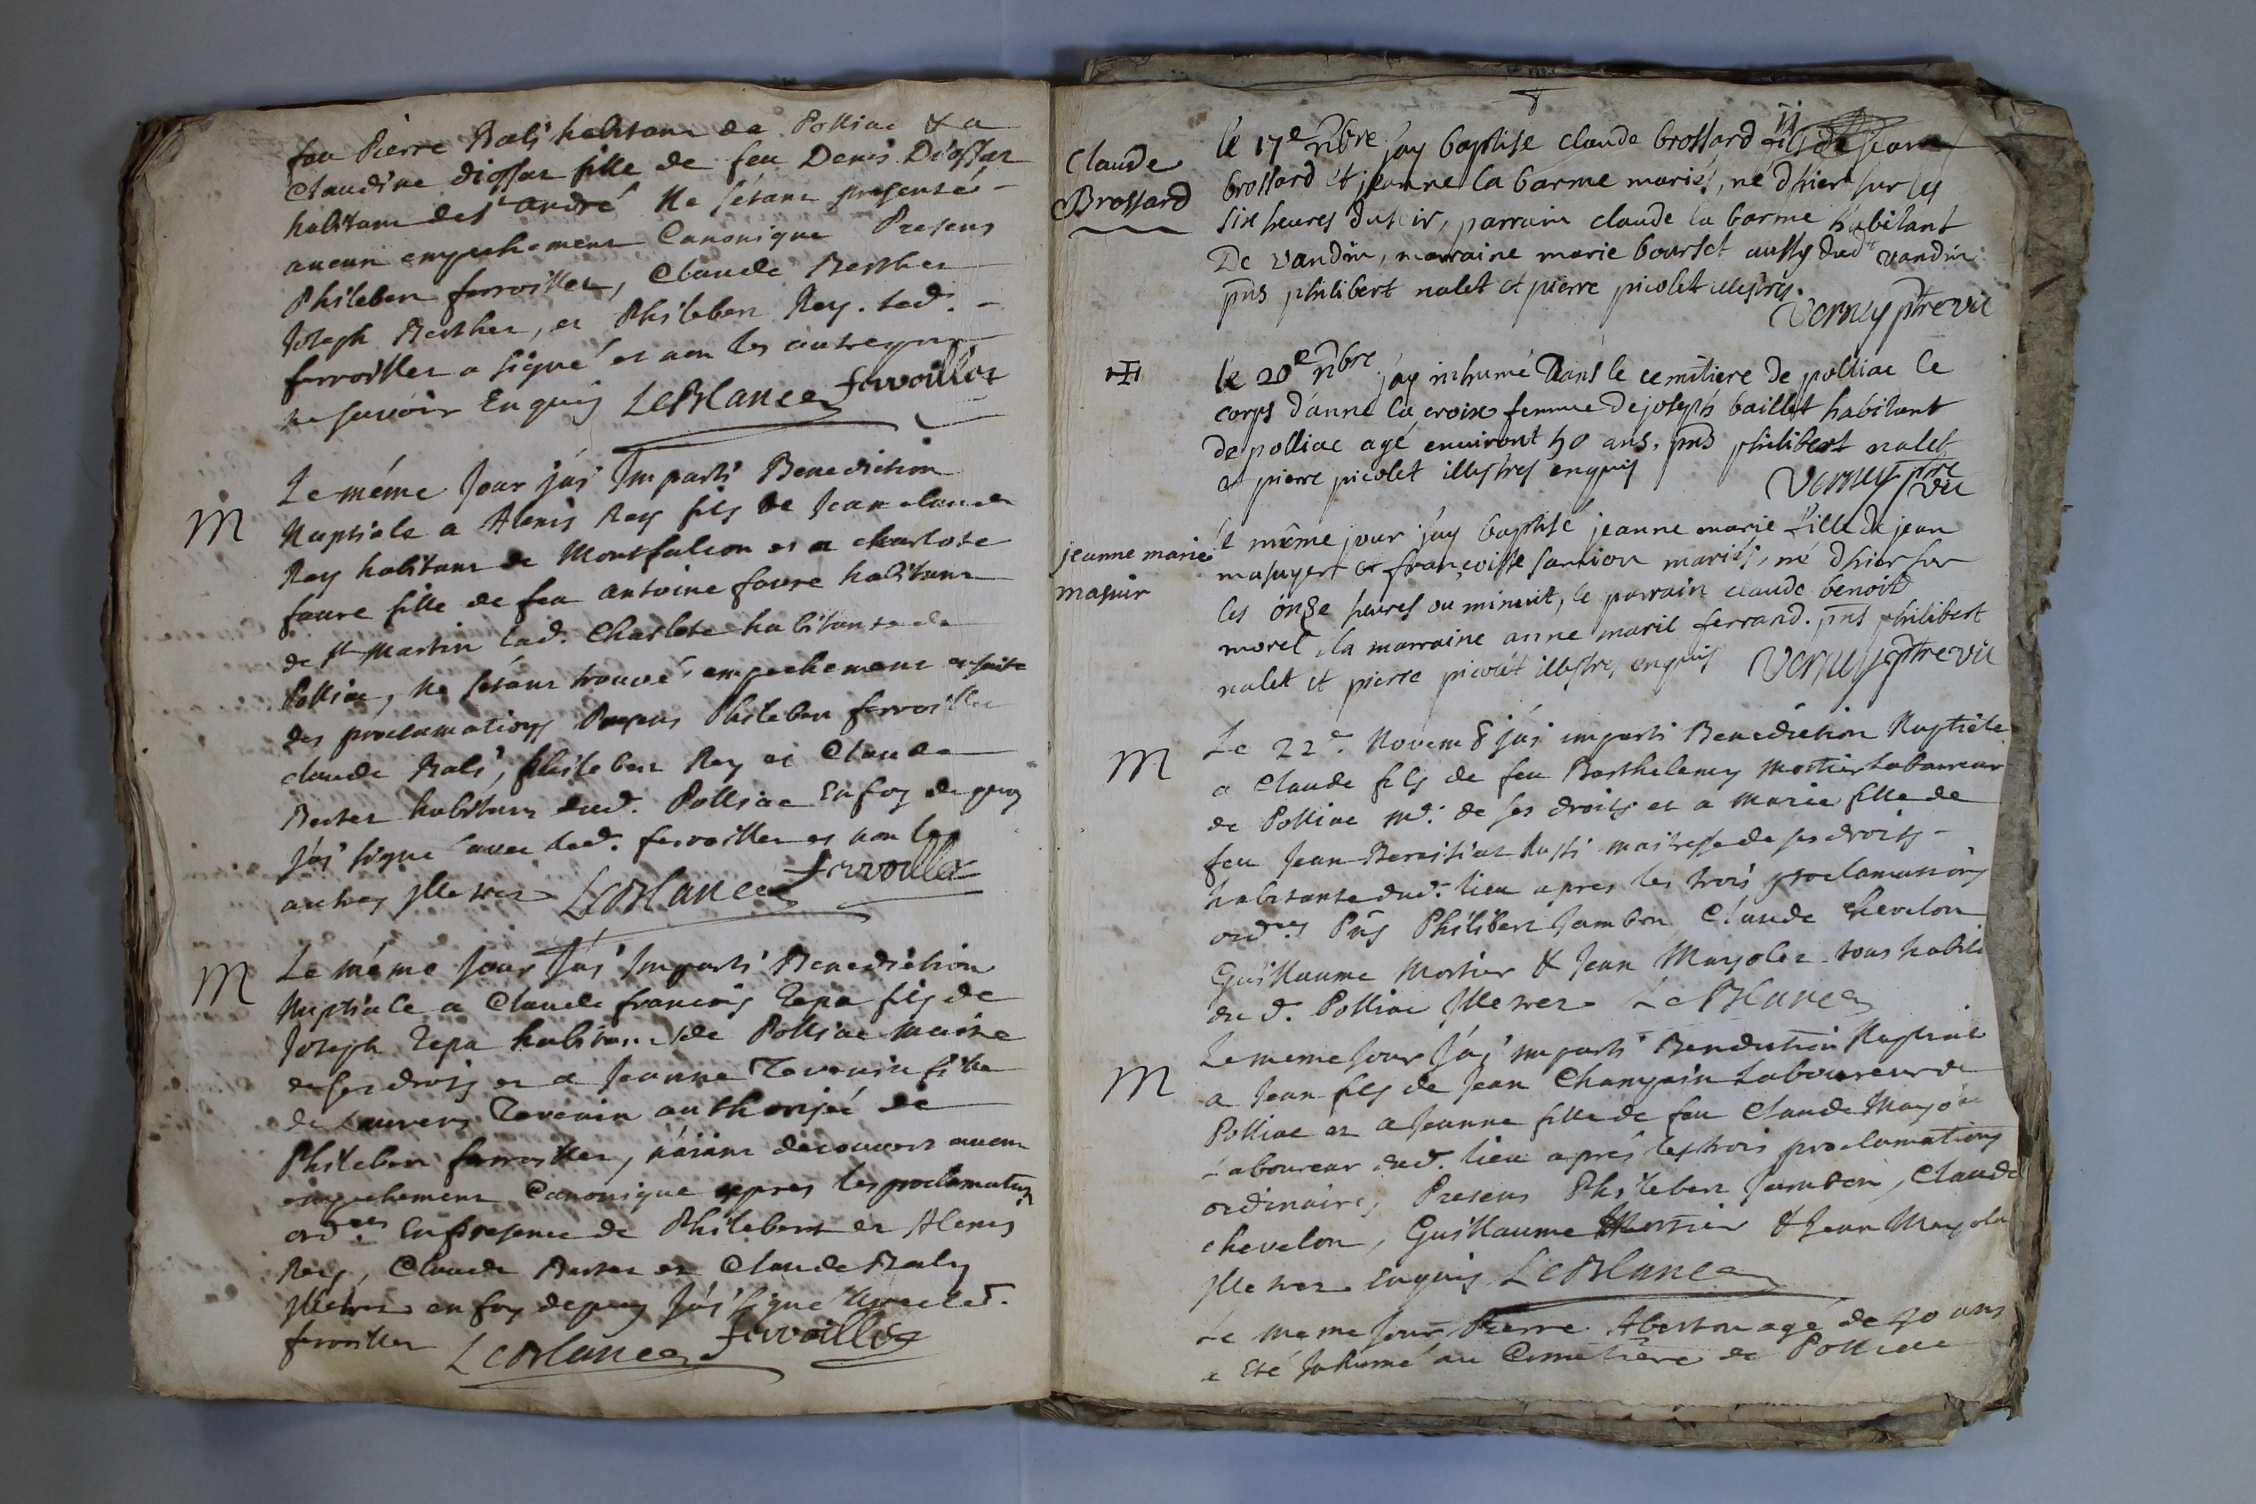 feu Pierre Rali habitant de Polliac & a
Claudine diossar fille de feu Denis Diossar
habitant de st André Ne s'étant présenté
aucun empechement Canonique Presens
Philebert fervoiller, Claude Berther
Joseph Berther, et Philebert Rey. led.
fervoiller a signé et non les autres pour
ne scavoir Enquis LeBlanc Fervoillet
M
Le méme Jour jai Imparti Benediction
Nuptiale a Alexis Rey fils de Jean claude
Rey habitant de Montfalcon et a charlote
favre fille de feu antoine favre habitant
de st Martin lad. Charlote habitante de
Polliac, Ne s'étant trouvé empechement ensuite
des proclamations Presens Philebert fervoiller
claude Rali, philebert Rey et Claude
Berter habitans dud. Polliac En foy de quoy
J'ai signé avec led. fervoiller et non les
autres illetres LeBlanc Fervoillet
M
Le méme Jour J'ai Imparti Benediction
Nuptiale a Claude francois Tepa fils de
Joseph Tepa habitant de Polliac maitre
de ses droits et a Jeanne Tevenin fille
de Laurens Tevenin authorisée de
Philebert fervoiller, n'aiant decouvert aucun
empechement Canonique apres les proclamations
ordres En presence de Philebert et Alexis
Rey, Claude Berter et Claude Raly
illetres en foy de quoy J'ai signé avec led.
fervoiller LeBlanc Fervoillet
11
Claude
Brossard
le 17e nbre j'ay baptisé claude brossard fils de jean
brossard et jeanne la barme mariés, né d'hier sur les
six heures du soir, parrain claude la barme habitant
De vandin, marraine marie bourset aussy dudt vandin
pns philibert nalet et pierre picolet illestres.
Verney ptre vic
le 20e nbre j'ay inhumé Dans le cemitiere de polliac le
corps d'anne la croix femme de joseph baillet habitant
de polliac agé environt 50 ans, pns philibert nalet
et pierre picolet illestres enquis
Verney ptre
vic
jeanne marie
masuir
le même jour j'ay baptisé jeanne marie fille de jean
masuyer et françoise sarrion mariés, né d'hier sur
les onze heures ou minuit, le parrain claude benoit
morel, la marraine anne marie ferrand. pns philibert
nalet et pierre picolet illestres, enquis Verney ptre vic
M
Le 22e. Novem 8 j'ai imparti Benediction Nuptiale
a Claude fils de feu Barthelemy Mortier Laboureur
de Polliac md. de ses droits et a Marie fille de
feu Jean Beneisiat Rusti maitresse de ses droits
habitante dud. lieu apres les trois proclamations
ordres Pns Philibert Jambon Claude Chevelon
Guillaume Mortier & Jean Mayolet tous habits
du d. Polliac Illetrez LeBlanc
M
Le meme Jour J'ai imparti Benediction Nuptiale
a Jean fils de Jean Champain Laboureur de
Polliac et a Jeanne fille de feu Claude Mayolet
Laboureur dud. lieu après les trois proclamations
ordinaires, Presens Philebert Jambon, Claude
chevelon, Guillaume Mortier & Jean Mayolet
Illetrez Enquis LeBlanc
Le meme Jour Pierre Aberton agé de 50 ans
a Eté Inhumé au Cimetiere de Polliac